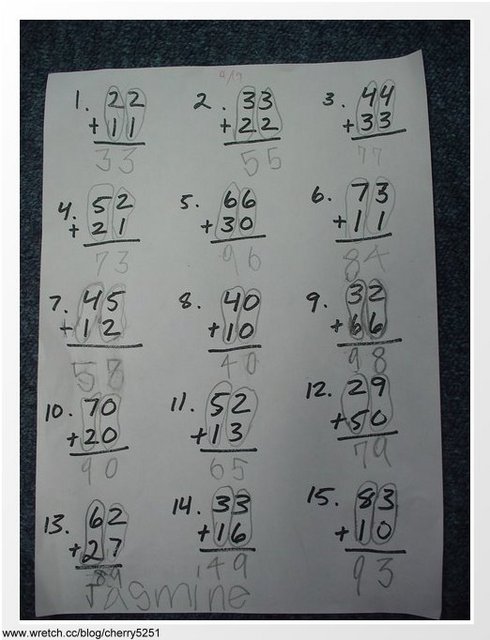 4/19
1. 22 2. 33 3. 44
+11 +22 +33
33 55 77
4. 52 5. 66 6. 73
+21 +30 +11
73 96 84
7. 45 8. 40 9. 32
+12 +10 +66
58 40 98
10. 70 11. 52 12. 29
+20 +13 +50
90 65 79
13. 62 14. 33 15. 83
+27 +16 +10
89 49 93
Jasmine
www.wretch.cc/blog/cherry5251